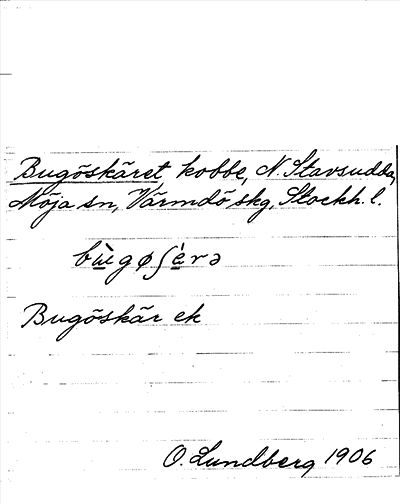 Bugöskäret kobbe, N. Stavsudda,
Möja sn, Värmdö skg, Stockh. l.
bùgøʃérə
Bugöskär ek
O. Lundberg 1906